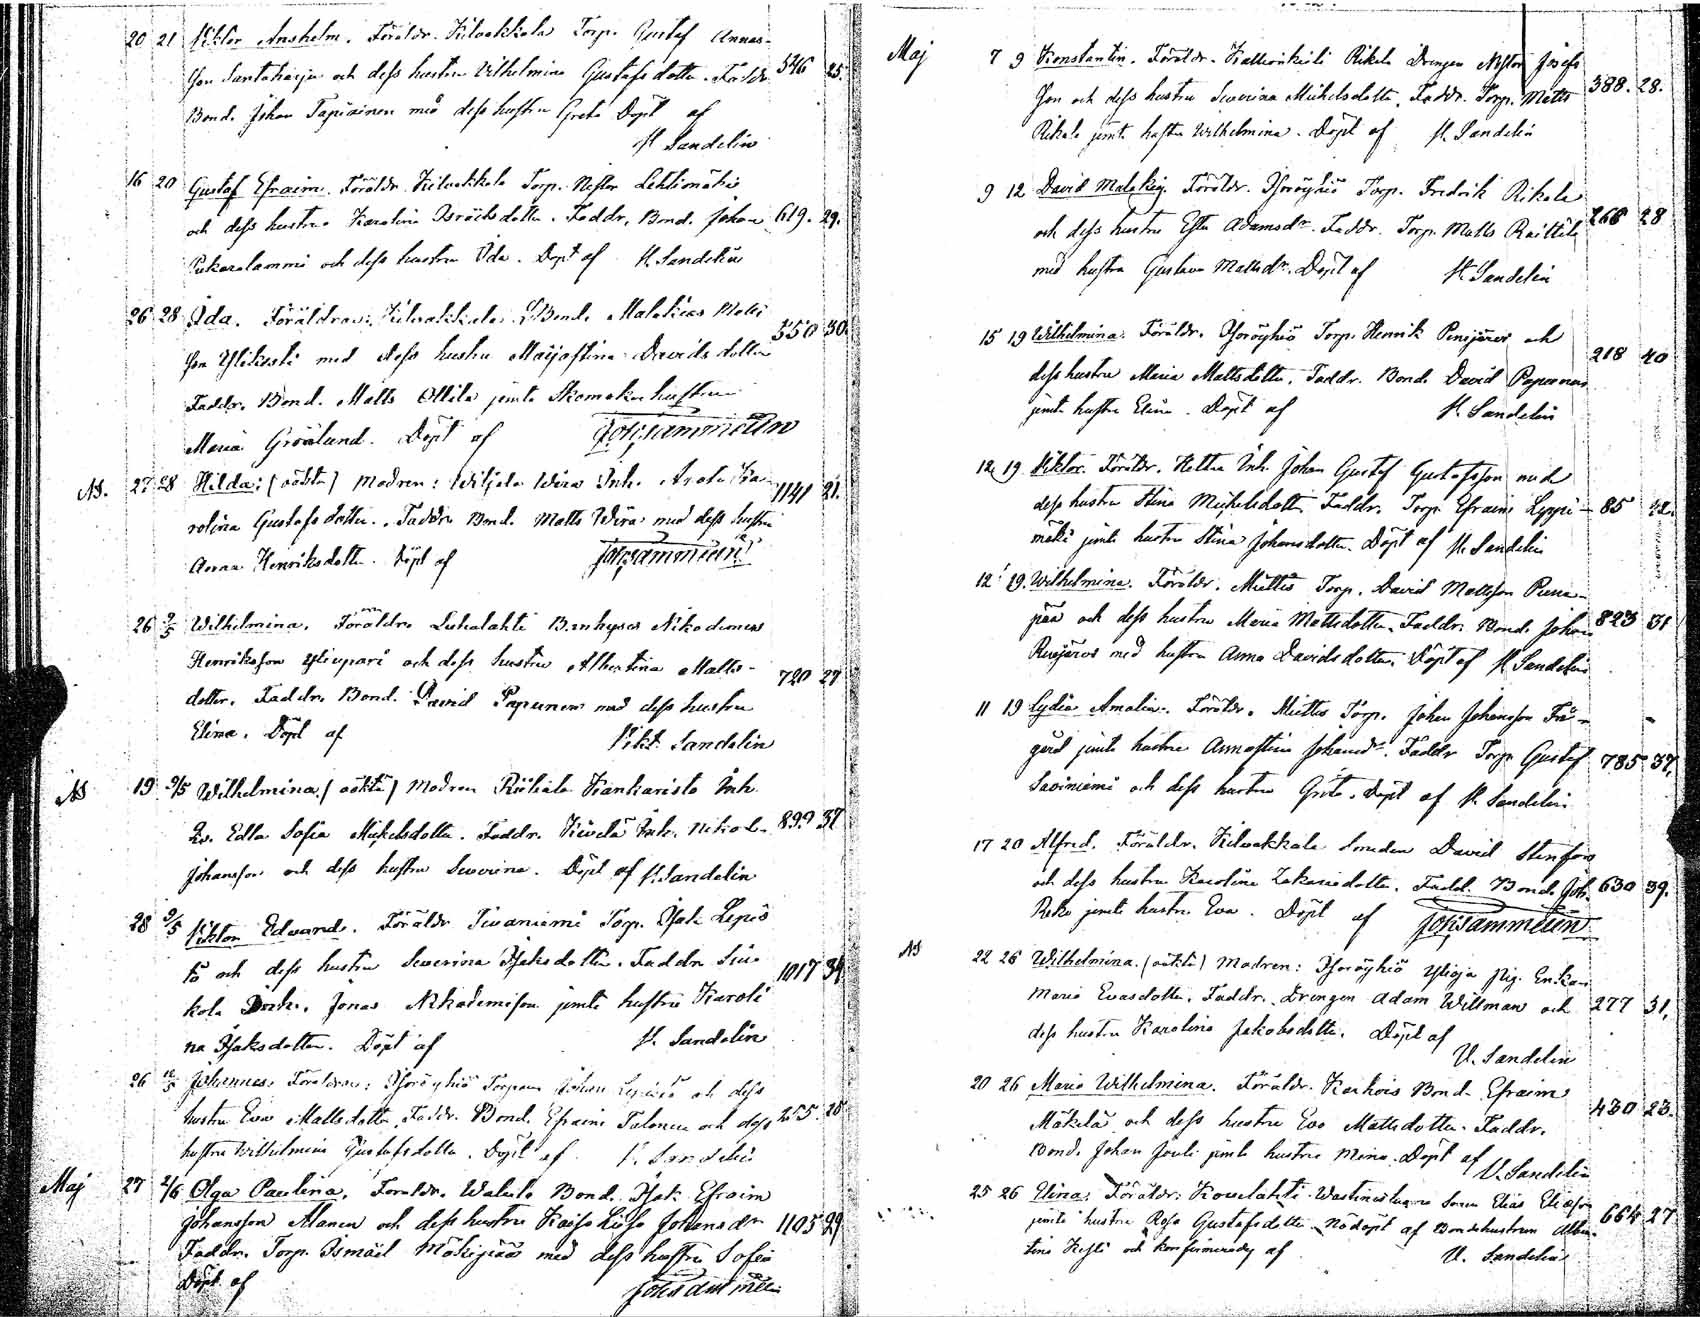 20 21 Viktor Anshelm. Föräldr. Kilvakkala Torp. Gustaf Annas-
son Santaharju och dess hustru Vilhelmina Gustafsdotter. Faddr. 546 25.
Bond. Johan Papininen med dess hustru Greta Döpt af
V. Sandelin
16 20 Gustaf Efraim. Föräldr. Kilvakkala Torp. Nestor Lehtimäki
och dess hustru Karolina Isracksdotter. Faddr. Bond. Johan 619. 29.
Pukaralammi och dess hustru Ida. Döpt af V. Sandelin
26 28 Ida. Föräldrar: Kilvakkala Bond. Malakias Matts
son Ylikoski med dess hustru Majastina Davidsdotter 550 30.
Faddr. Bond. Matts Ollila jemte Skomakar hustrun
Maria Grönlund. Döpt af Joh. Sammelin
NS. 27 28 Hilda: (oäkta) Modren: Viljala Wira Inh. Ka-
rolina Gustafsdotter. Faddr. Bond. Matts Wira med dess hustru 1141 21.
Anna Henriksdotter. Döpt af Joh. Sammelin
26 2/5 Wilhelmina. Föräldr. Luhalahti Backstusittare Nikodemus
Henriksson Ylinepari och dess hustru Albertina Matts-
dotter. Faddr. Bond. David Papunen med dess hustru 720 27
Elina. Döpt af Vikt. Sandelin
NS 19 3/5 Wilhelmina (oäkta) Modren Riitiala Kankaristo Inh.
Edla Sofia Mickelsdotter. Faddr. Kiwelä Inh. Nikod. 899 37
Johansson och dess hustru Severina. Döpt af V. Sandelin
28 9/5 Viktor Edvard. Föräldr Tevaniemi Torp. Isak Lepis
tö och dess hustru Severina Isaksdotter. Faddr Sii-
kola Jonas Nikodemisson jemte hustru Karoli 1017 34
na Isaksdotter. Döpt af V. Sandelin
26 Johannes. Föräldrar: Isoröyhiö Torparen Johan Lepistö och dess
hustru Eva Mattsdotter. Faddr. Bond. Efraim Talonen och dess 255 28
hustru Wilhelmina Gustafsdotter. Döpt af V. Sandelin
Maj 27 2/6 Olga Paulina. Föräldr. Watula Bond. Isak Efraim
Johansson Alanen och dess hustru Kajsa Lisa Johansdr 1105 29
Faddr. Torp. Ismäel Mäkipää med dess hustru Sofia
Döpt af Joh. Sammelin
Maj 7 9 Konstantin. Föräldr. Kallionkieli Rikala Drengen Nestor Josefs
son och dess hustru Severina Mickelsdotter. Faddr. Torp. Matts 388. 28.
Rikala jemte hustru Wilhelmina. Döpt af V. Sandelin
9 12 David Malakias. Föräldr. Isoröyhiö Torp. Fredrik Rikala
och dess hustru Ester Adamsdr. Faddr. Torp. Matts Raittila 266 28
med hustru Gustava Mattsdr. Döpt af V. Sandelin
15 19 Wilhelmina. Föräldr. Isoröyhiö Torp. Henrik Penijärvi och
dess hustru Maria Mattsdotter. Faddr. Bond. David Papunen 218 40
jemte hustru Elina. Döpt af V. Sandelin
12 19 Viktor. Föräldr. Hettu Inh. Johan Gustaf Gustafsson med
dess hustru Stina Mickelsdotter. Faddr. Torp. Efraim Leppi- 85 42.
mäki jemte hustru Stina Johansdotter. Döpt af V. Sandelin
12 19. Wilhelmina. Föräldr. Miettis Torp. David Mattsson Puna-
pää och dess hustru Maria Mattsdotter. Faddr. Bond. Johan 823 31
Penijärvi med hustru Anna Davidsdotter. Döpt af V. Sandelin
11 19 Lydia Amalia. Föräldr. Miettis Torp. Johan Johansson Trä-
gård jemte hustru Annastina Johansdr. Faddr Torp. Gustaf 785 37.
Saviniemi och dess hustru Greta. Döpt af V. Sandelin
17 20 Alfred. Föräldr. Kilvakkala Smeden David Stenfors
och dess hustru Karolina Zakariedotter. Fadd. Bond. Joh. 630 39.
Reko jemte hustru Eva. Döpt af Joh. Sammelin
NS 22 26 Wilhelmina. (oäkta) Modren: Isoröyhiö Ylioja Pig. Enkan
Maria Evasdotter. Faddr. Drengen Adam Willman och 277 31.
dess hustru Karolina Jakobsdotter. Döpt af
V. Sandelin
20 26 Maria Wilhelmina. Föräldr. Karhois Bond. Efraim
Mäkilä och dess hustru Eva Mattsdotter. Faddr. 430 23.
Bond. Johan Jouti jemte hustru Mina. Döpt af
V. Sandelin
25 26 Elina: Föräldr: Kovelahti Elias Eliasson
jemte hustru Rosa Gustafsdotter Nöddöpt af Bondehustrun Alber- 664 27
tina Kesti och konfirmerad af V. Sandelin